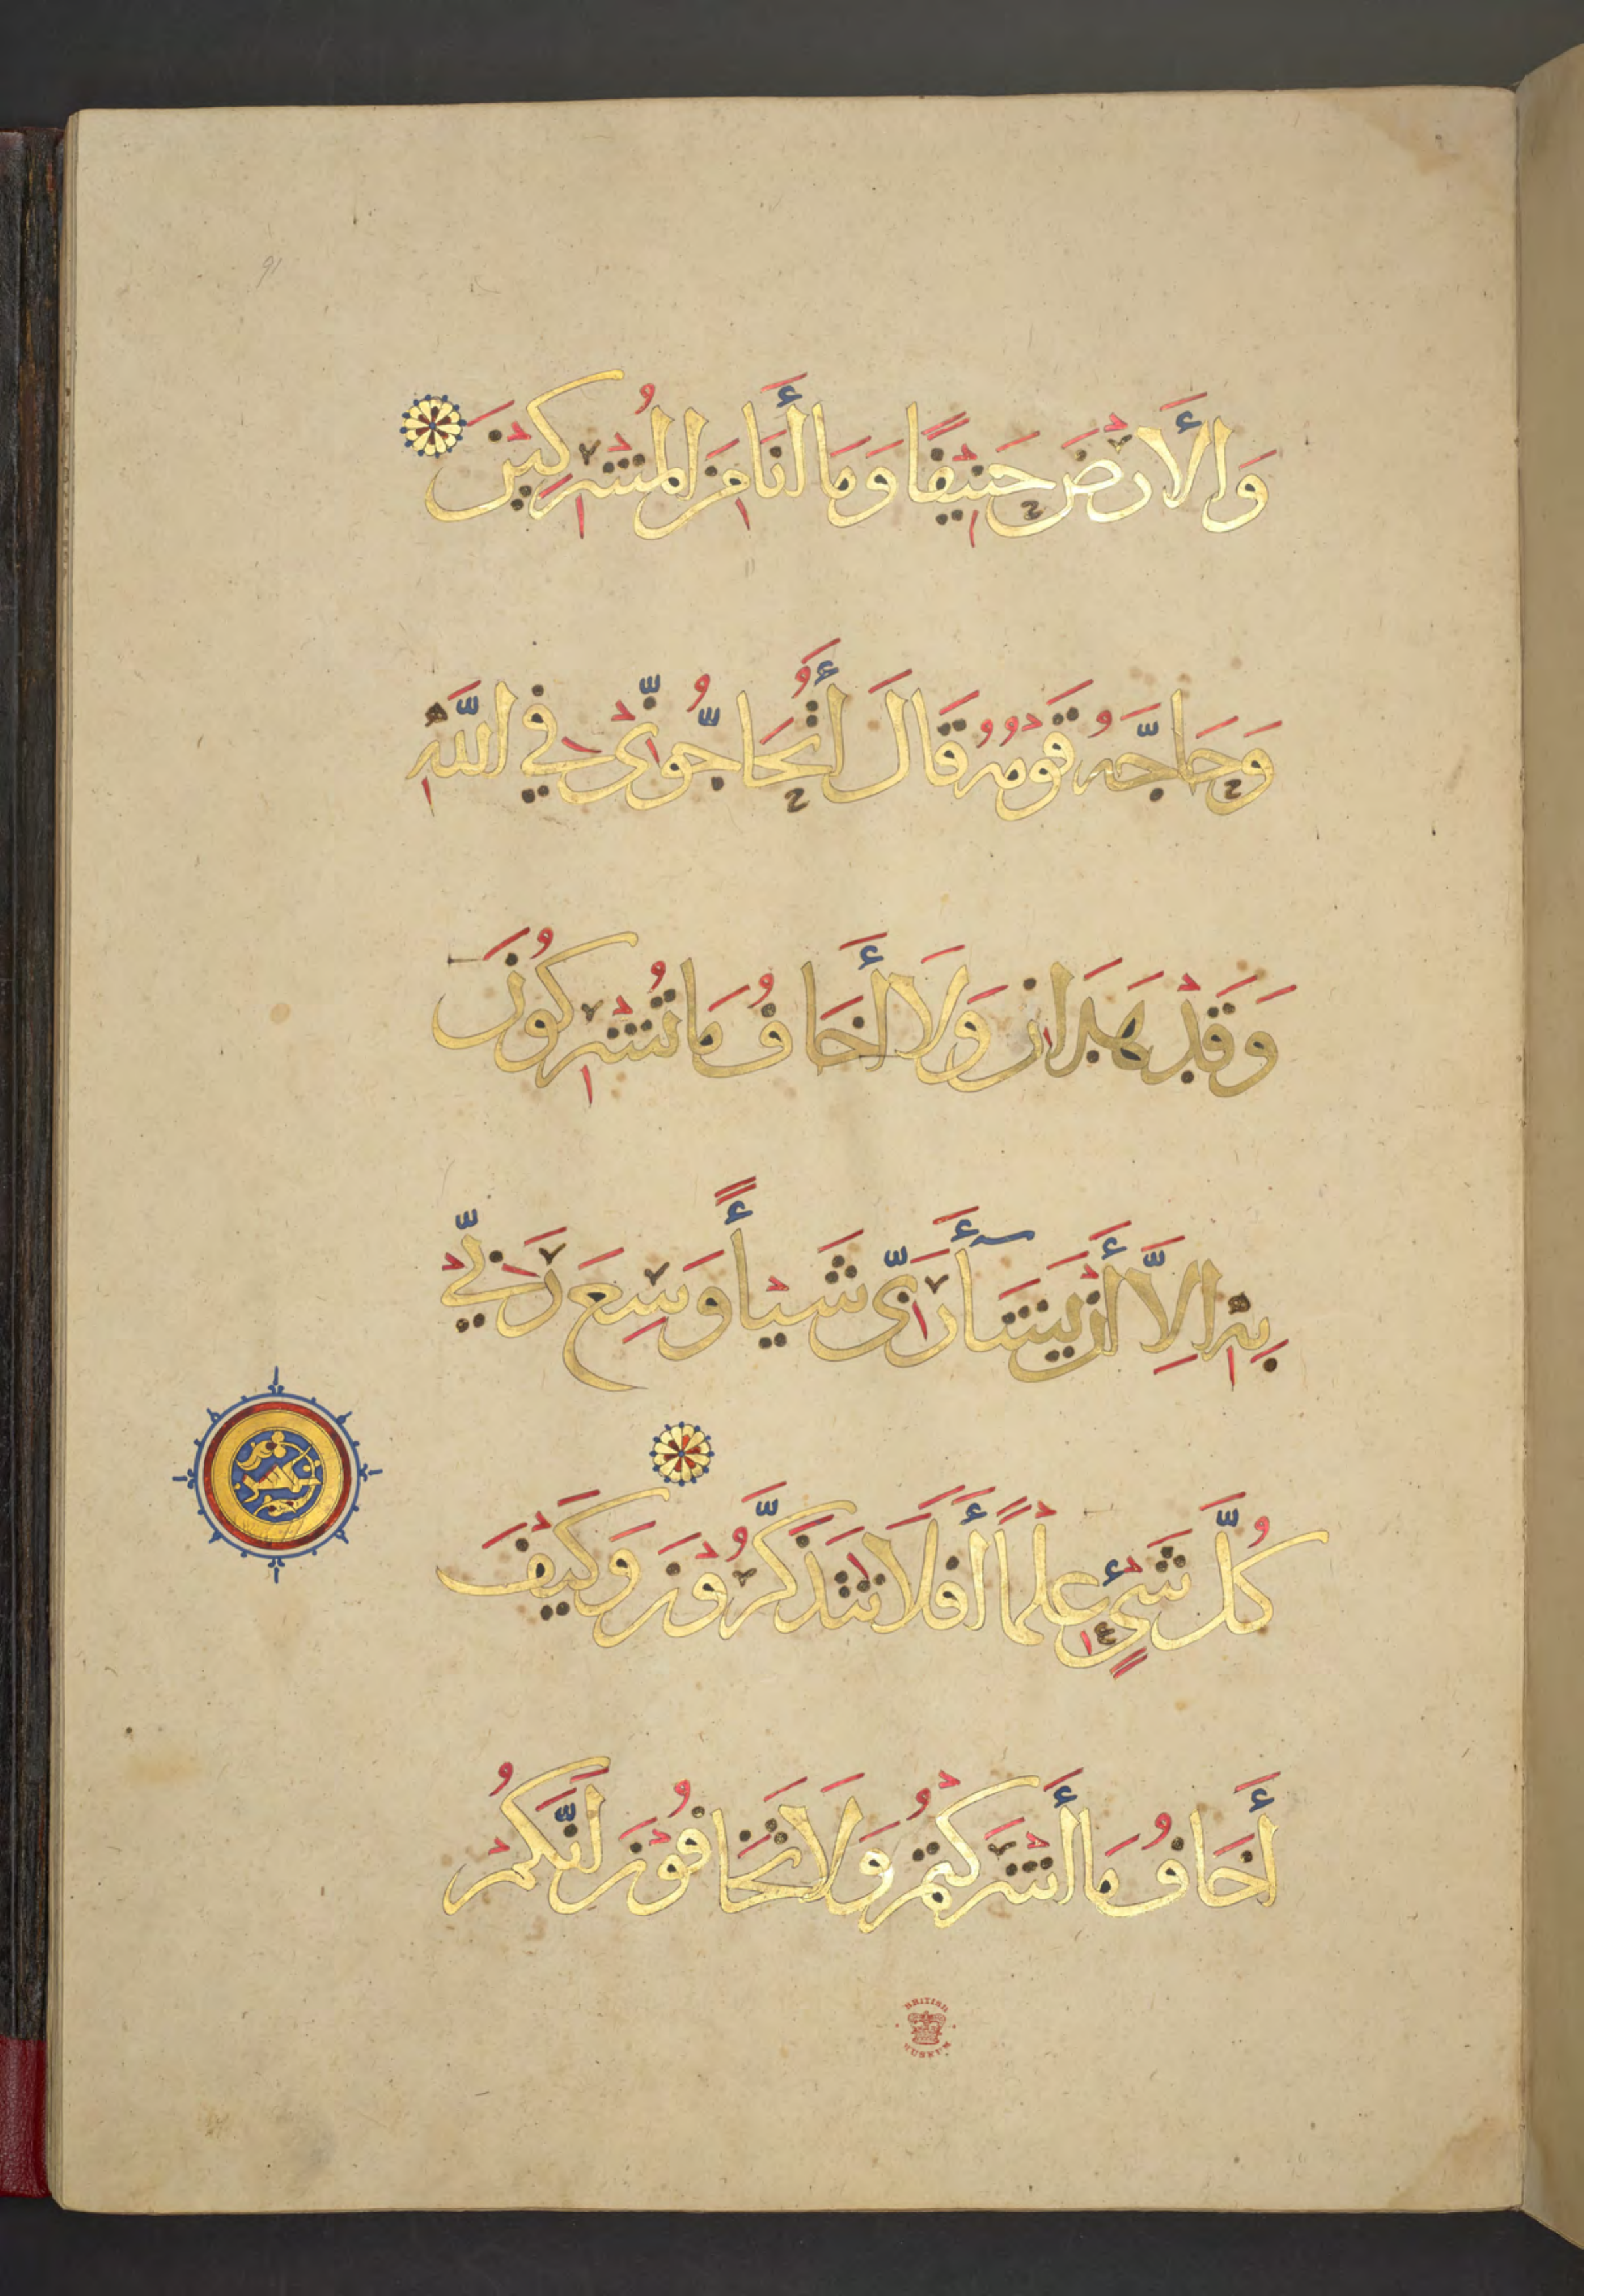 91
وَالْأَرْضَ حَنِيْفًا وَمَا أَنَا مِنَ الْمُشْرِكِيْنَ
وَحَاجَّهُ قَوْمُهُ قَالَ أَتُحَاجُّوْنِّيْ فِي اللَّهِ
وَقَدْ هَدَانِ وَلَا أَخَافُ مَا تُشْرِكُوْنَ
بِهِ إِلَّا أَنْ يَشَآءَ رَبِّيْ شَيْأً وَسِعَ رَبِّيْ
كُلَّ شَيْءٍ عِلْمًا أَفَلَا تَتَذَكَّرُوْنَ وَكَيْفَ
أَخَافُ مَا أَشْرَكْتُمْ وَلَا تَخَافُوْنَ أَنَّكُمْ
BRITISH
MUSEUM